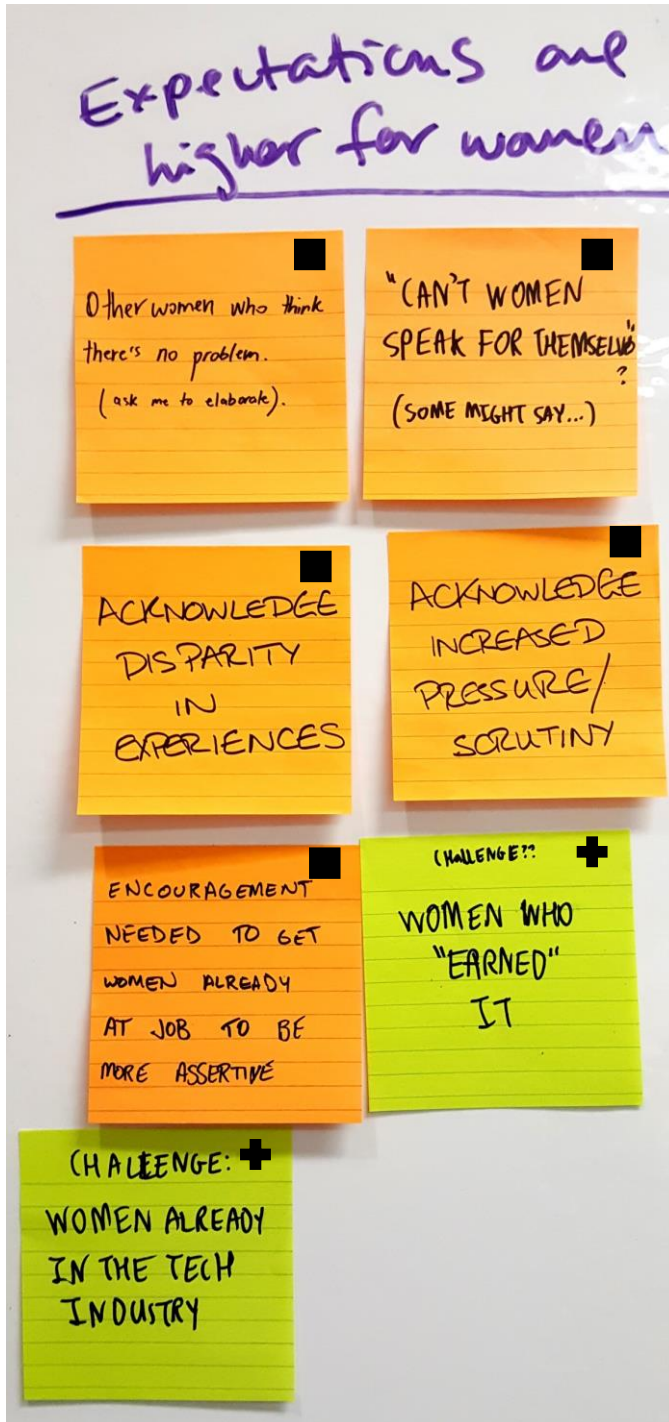 Expectations are
higher for women
Other women who think
there's no problem.
(ask me to elaborate).
"CAN'T WOMEN
SPEAK FOR THEMSELVES"
?
(SOME MIGHT SAY...)
ACKNOWLEDGE
DISPARITY
IN
EXPERIENCES
ACKNOWLEDGE
INCREASED
PRESSURE/
SCRUTINY
ENCOURAGEMENT
NEEDED TO GET
WOMEN ALREADY
AT JOB TO BE
MORE ASSERTIVE
CHALLENGE??
WOMEN WHO
"EARNED"
IT
CHALLENGE:
WOMEN ALREADY
IN THE TECH
INDUSTRY